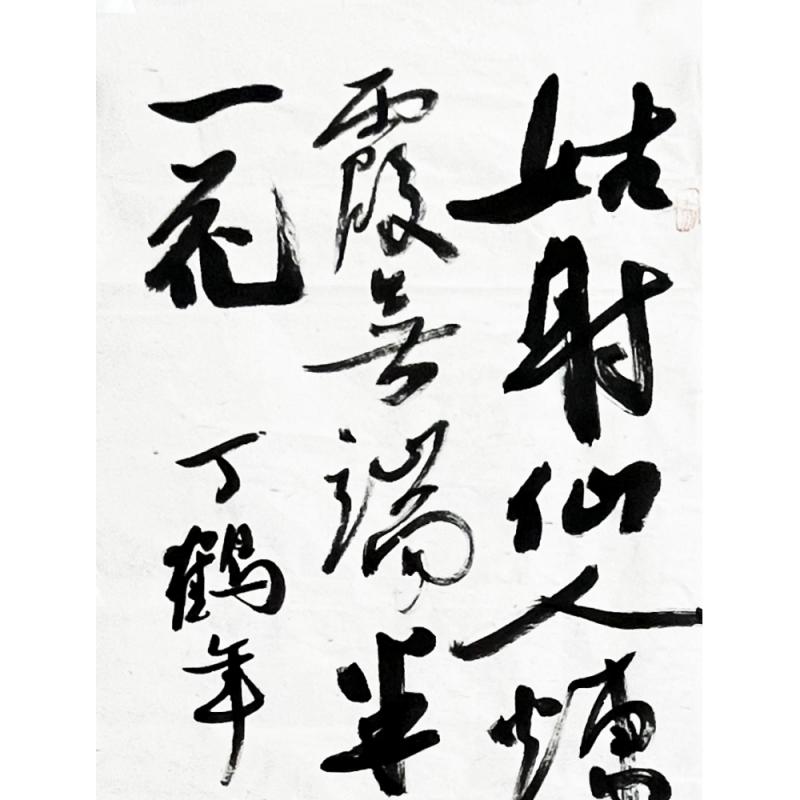 姑射仙人煉
霞無端半
一花
丁鶴年